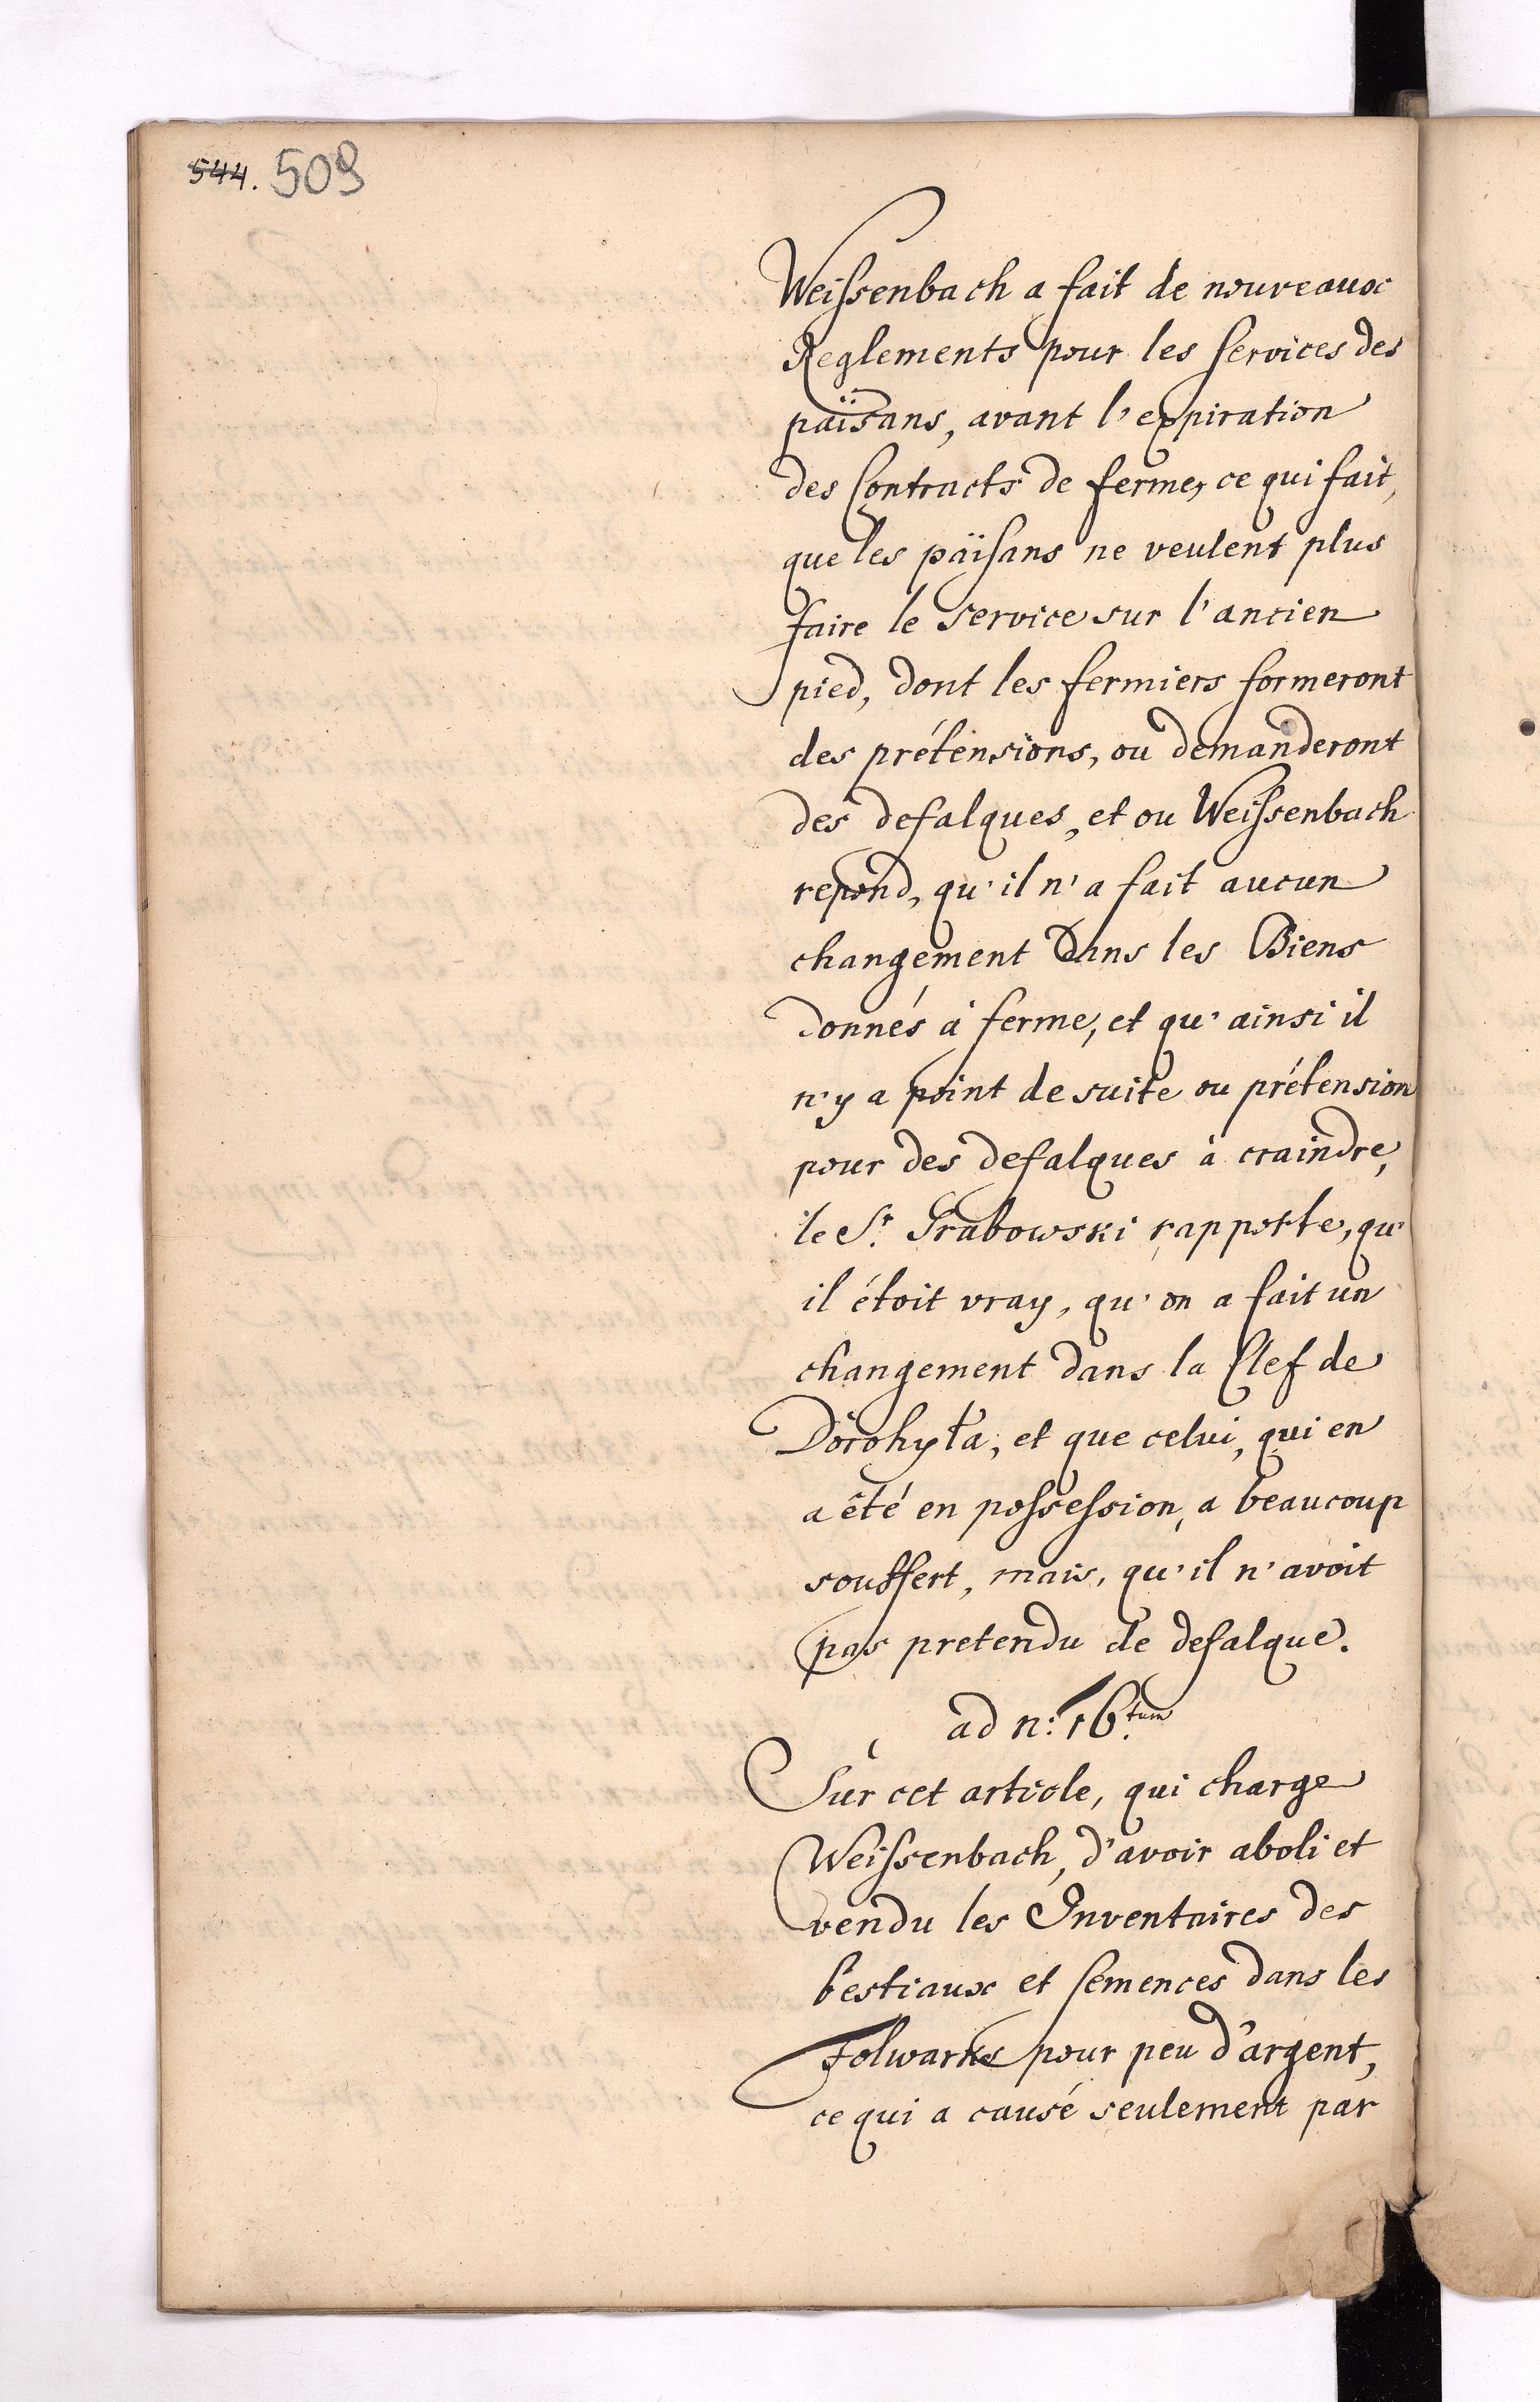 544. 509
Weissenbach a fait de nouveaux
Reglements pour les services des
païsans, avant l'expiration
des Contracts de ferme, ce qui fait,
que les païsans ne veulent plus
faire le service sur l'ancien
pied, dont les fermiers formeront
des prétensions, ou demanderont
des defalques, et ou Weissenbach
repond, qu'il n'a fait aucun
changement dans les Biens
donnés à ferme, et qu'ainsi il
n'y a point de suite ou prétension
pour des defalques à craindre,
le Sr. Grabowski rapporte, qu'
il étoit vray, qu'on a fait un
changement dans la Clef de
Dorohyta, et que celui, qui en
a été en possession, a beaucoup
souffert, mais, qu'il n'avoit
pas pretendu de defalque.
ad n: 16.tum
Sur cet article, qui charge
Weissenbach, d'avoir aboli et
vendu les Inventaires des
bestiaux et semences dans les
Folwarks pour peu d'argent,
ce qui a causé seulement par